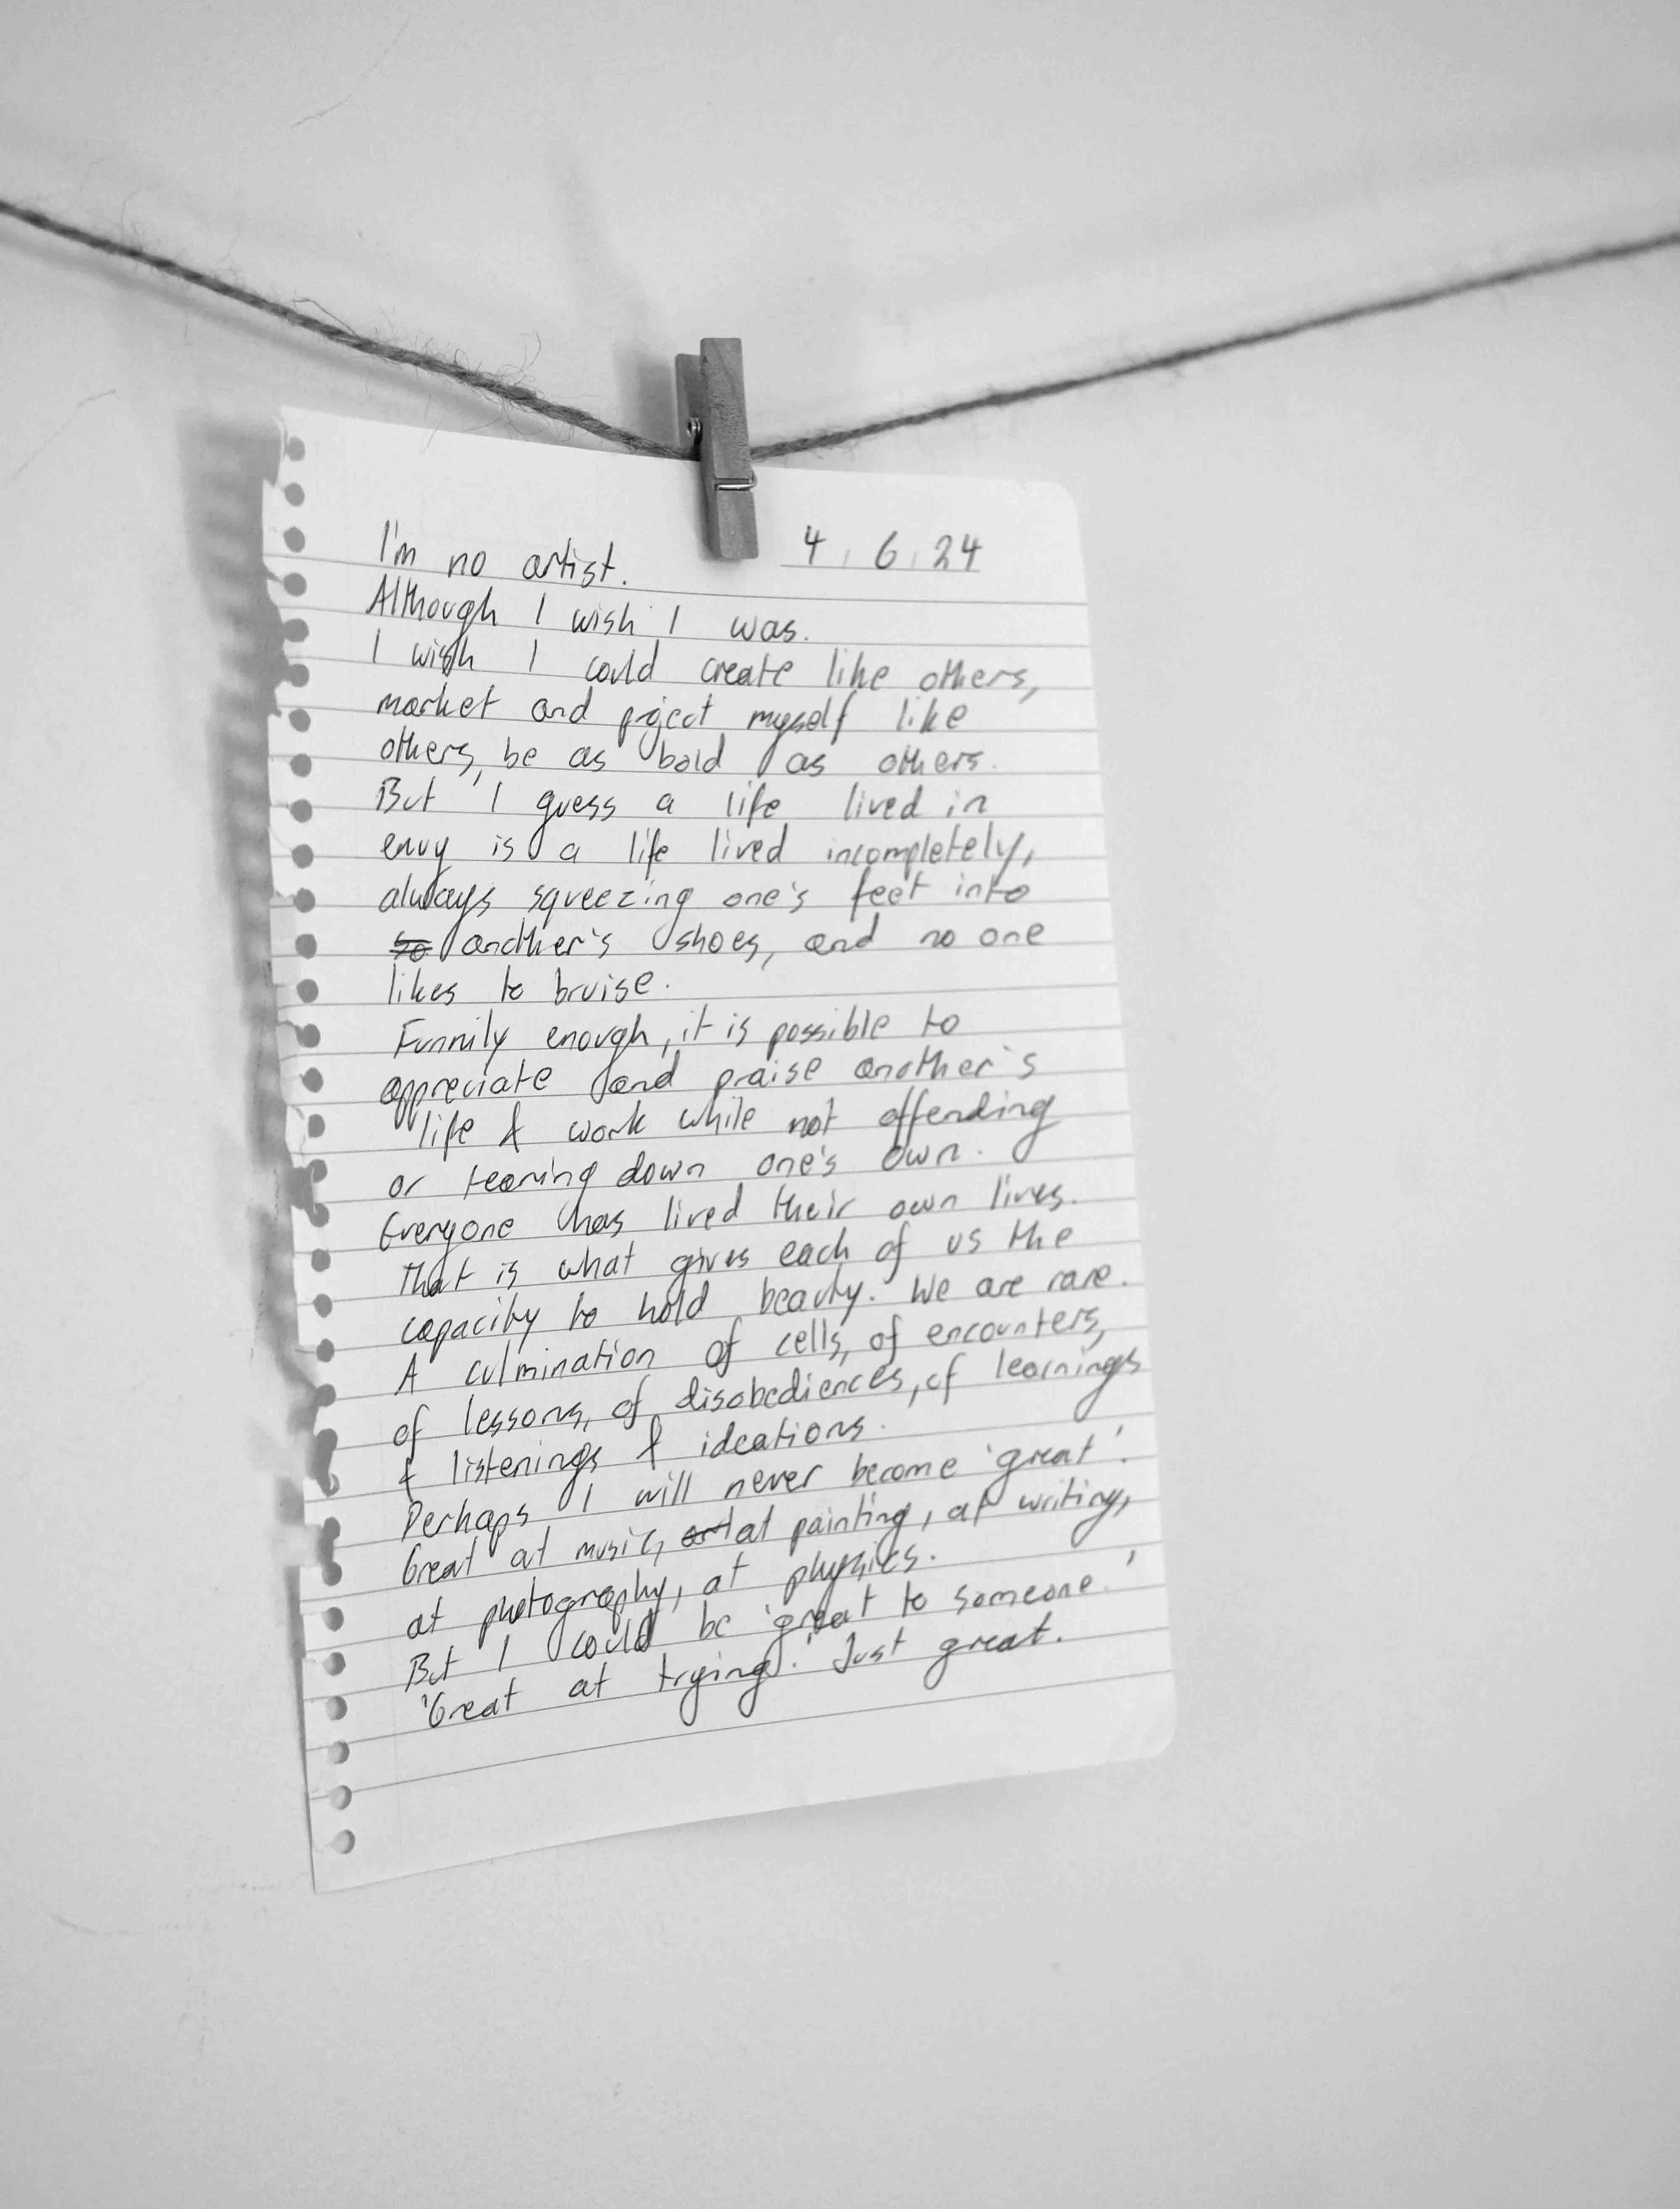 4.6.24
I'm no artist.
Although I wish I was.
I wish I could create like others,
market and project myself like
others, be as bold as others.
But I guess a life lived in
envy is a life lived incompletely,
always squeezing one's feet into
so another's shoes, and no one
likes to bruise.
Funnily enough, it is possible to
appreciate and praise another's
life & work while not offending
or tearing down one's own.
Everyone has lived their own lives.
That is what gives each of us the
capacity to hold beauty. We are rare.
A culmination of cells, of encounters,
of lessons, of disobediences, of learnings
& listenings & ideations.
Perhaps I will never become 'great'.
Great at music, at painting, at writing,
at photography, at physics.
But I could be 'great to someone.'
'Great at trying.' Just great.